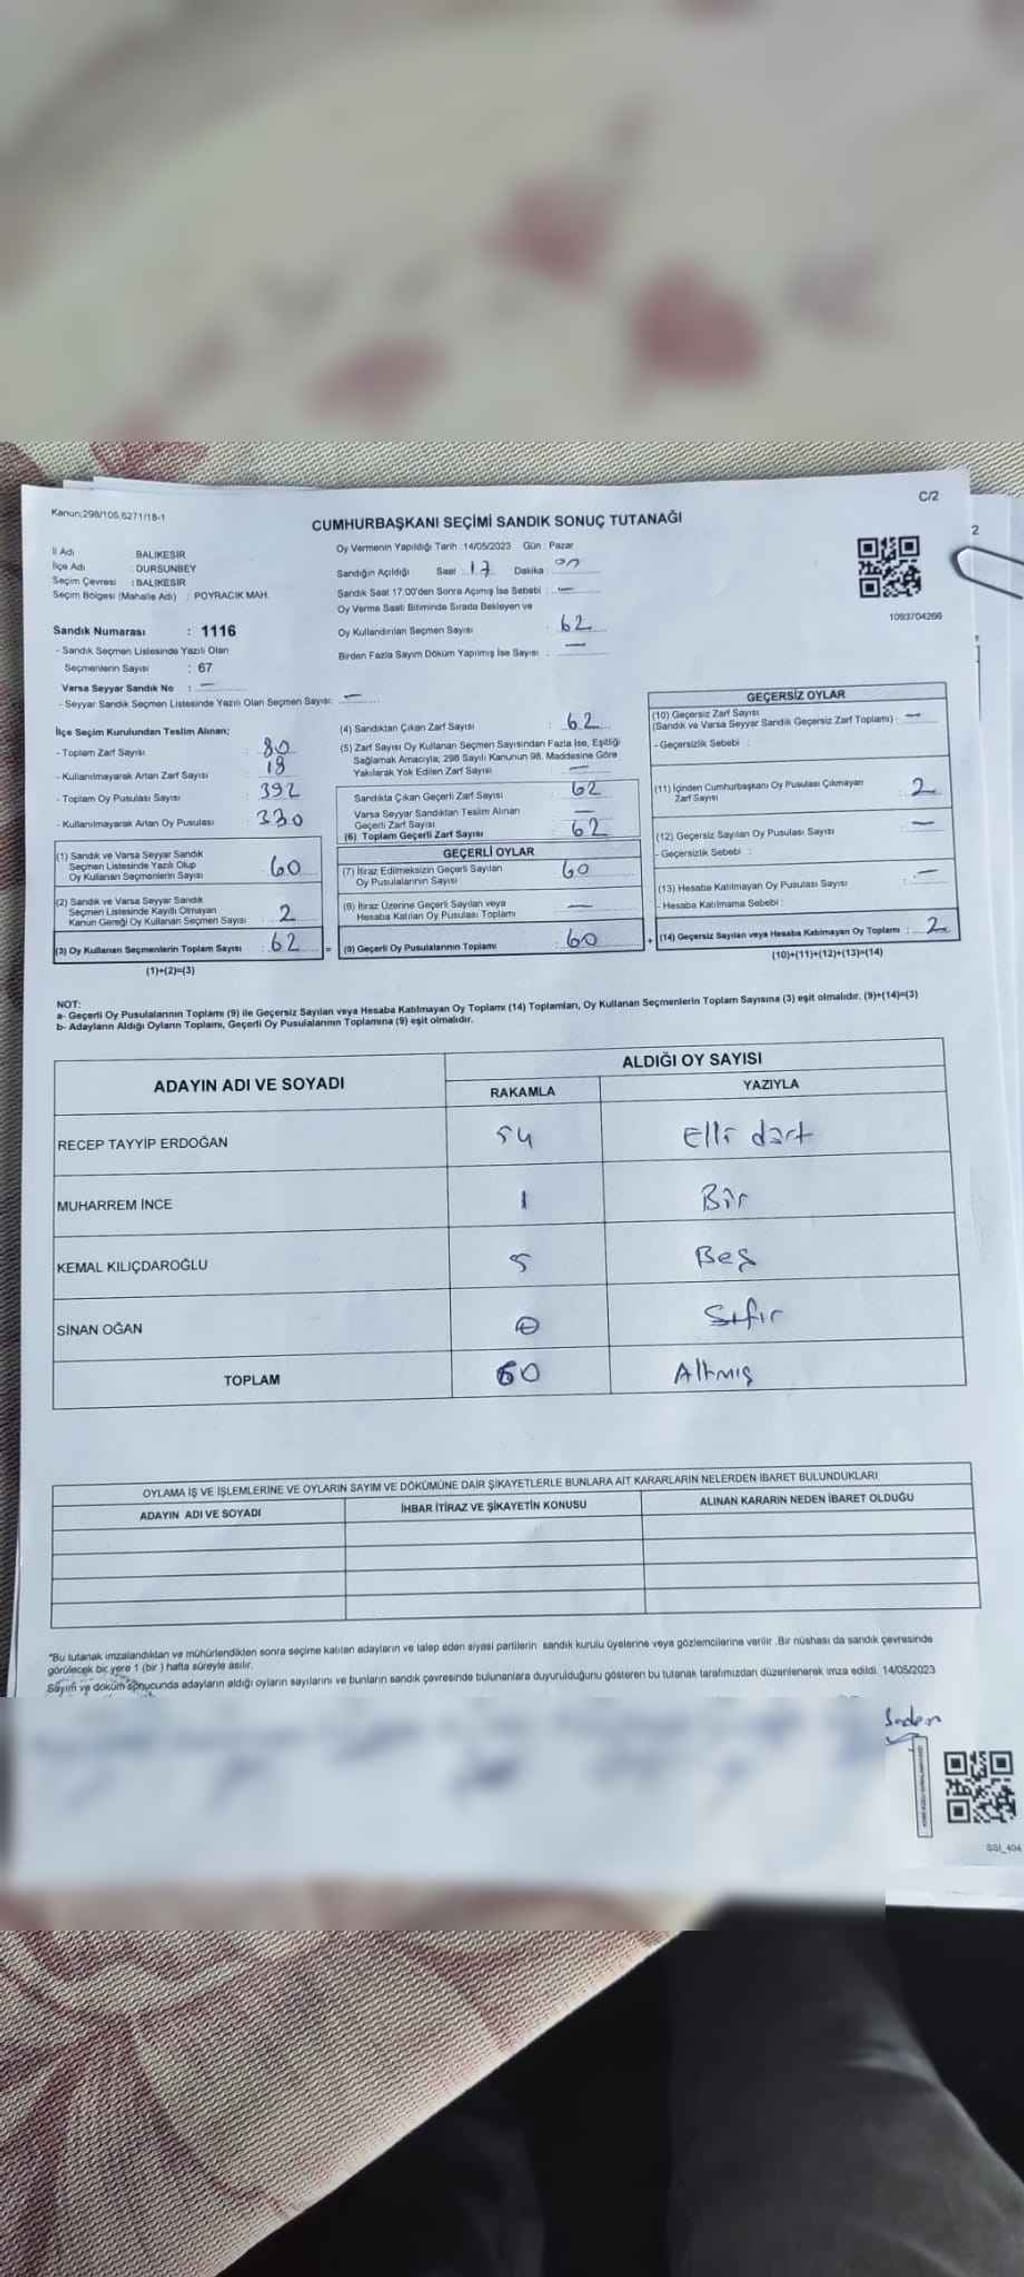 Kanun:298/106,6271/18-1
C/2
CUMHURBAŞKANI SEÇİMİ SANDIK SONUÇ TUTANAĞI
2
İl Adı BALIKESİR
İlçe Adı : DURSUNBEY
Seçim Çevresi : BALIKESİR
Seçim Bölgesi (Mahalle Adı) : POYRACIK MAH.
Oy Vermenin Yapıldığı Tarih :14/05/2023 Gün : Pazar
Sandığın Açıldığı Saat : 17 Dakika : 00
Sandık Saat 17:00'den Sonra Açımış İse Sebebi : —
Oy Verme Saati Bitiminde Sırada Bekleyen ve
Oy Kullandırılan Seçmen Sayısı : 62
Birden Fazla Sayım Döküm Yapılmış İse Sayısı : —
1093704266
Sandık Numarası : 1116
- Sandık Seçmen Listesinde Yazılı Olan
Seçmenlerin Sayısı : 67
Varsa Seyyar Sandık No : —
- Seyyar Sandık Seçmen Listesinde Yazılı Olan Seçmen Sayısı: —
İlçe Seçim Kurulundan Teslim Alınan;
- Toplam Zarf Sayısı : 80
- Kullanılmayarak Artan Zarf Sayısı : 18
- Toplam Oy Pusulası Sayısı : 392
- Kullanılmayarak Artan Oy Pusulası : 330
(1) Sandık ve Varsa Seyyar Sandık
Seçmen Listesinde Yazılı Olup
Oy Kullanan Seçmenlerin Sayısı : 60
(2) Sandık ve Varsa Seyyar Sandık
Seçmen Listesinde Kayıtlı Olmayan
Kanun Gereği Oy Kullanan Seçmen Sayısı : 2
(3) Oy Kullanan Seçmenlerin Toplam Sayısı : 62
(1)+(2)=(3)
(4) Sandıktan Çıkan Zarf Sayısı : 62
(5) Zarf Sayısı Oy Kullanan Seçmen Sayısından Fazla İse, Eşitliği
Sağlamak Amacıyla, 298 Sayılı Kanunun 98. Maddesine Göre
Yakılarak Yok Edilen Zarf Sayısı : —
Sandıkta Çıkan Geçerli Zarf Sayısı : 62
Varsa Seyyar Sandıktan Teslim Alınan
Geçerli Zarf Sayısı : —
(6) Toplam Geçerli Zarf Sayısı : 62
GEÇERLİ OYLAR
(7) İtiraz Edilmeksizin Geçerli Sayılan
Oy Pusulalarının Sayısı : 60
(8) İtiraz Üzerine Geçerli Sayılan veya
Hesaba Katılan Oy Pusulası Toplamı : —
= (9) Geçerli Oy Pusulalarının Toplamı : 60
GEÇERSİZ OYLAR
(10) Geçersiz Zarf Sayısı
(Sandık ve Varsa Seyyar Sandık Geçersiz Zarf Toplamı) : —
- Geçersizlik Sebebi :
(11) İçinden Cumhurbaşkanı Oy Pusulası Çıkmayan
Zarf Sayısı : 2
(12) Geçersiz Sayılan Oy Pusulası Sayısı : —
- Geçersizlik Sebebi :
(13) Hesaba Katılmayan Oy Pusulası Sayısı : —
- Hesaba Katılmama Sebebi :
+ (14) Geçersiz Sayılan veya Hesaba Katılmayan Oy Toplamı : 2
(10)+(11)+(12)+(13)=(14)
NOT:
a- Geçerli Oy Pusulalarının Toplamı (9) ile Geçersiz Sayılan veya Hesaba Katılmayan Oy Toplamı (14) Toplamları, Oy Kullanan Seçmenlerin Toplam Sayısına (3) eşit olmalıdır. (9)+(14)=(3)
b- Adayların Aldığı Oyların Toplamı, Geçerli Oy Pusulalarının Toplamına (9) eşit olmalıdır.
ADAYIN ADI VE SOYADI ALDIĞI OY SAYISI
RAKAMLA YAZIYLA
RECEP TAYYİP ERDOĞAN 54 Elli dört
MUHARREM İNCE 1 Bir
KEMAL KILIÇDAROĞLU 5 Beş
SİNAN OĞAN 0 Sıfır
TOPLAM 60 Altmış
OYLAMA İŞ VE İŞLEMLERİNE VE OYLARIN SAYIM VE DÖKÜMÜNE DAİR ŞİKAYETLERLE BUNLARA AİT KARARLARIN NELERDEN İBARET BULUNDUKLARI
ADAYIN ADI VE SOYADI İHBAR İTİRAZ VE ŞİKAYETİN KONUSU ALINAN KARARIN NEDEN İBARET OLDUĞU
"Bu tutanak imzalandıktan ve mühürlendikten sonra seçime katılan adayların ve talep eden siyasi partilerin sandık kurulu üyelerine veya gözlemcilerine verilir .Bir nüshası da sandık çevresinde
görülecek bir yere 1 (bir ) hafta süreyle asılır.
Sayım ve döküm sonucunda adayların aldığı oyların sayılarını ve bunların sandık çevresinde bulunanlara duyurulduğunu gösteren bu tutanak tarafımızdan düzenlenerek imza edildi. 14/05/2023
SGI_404